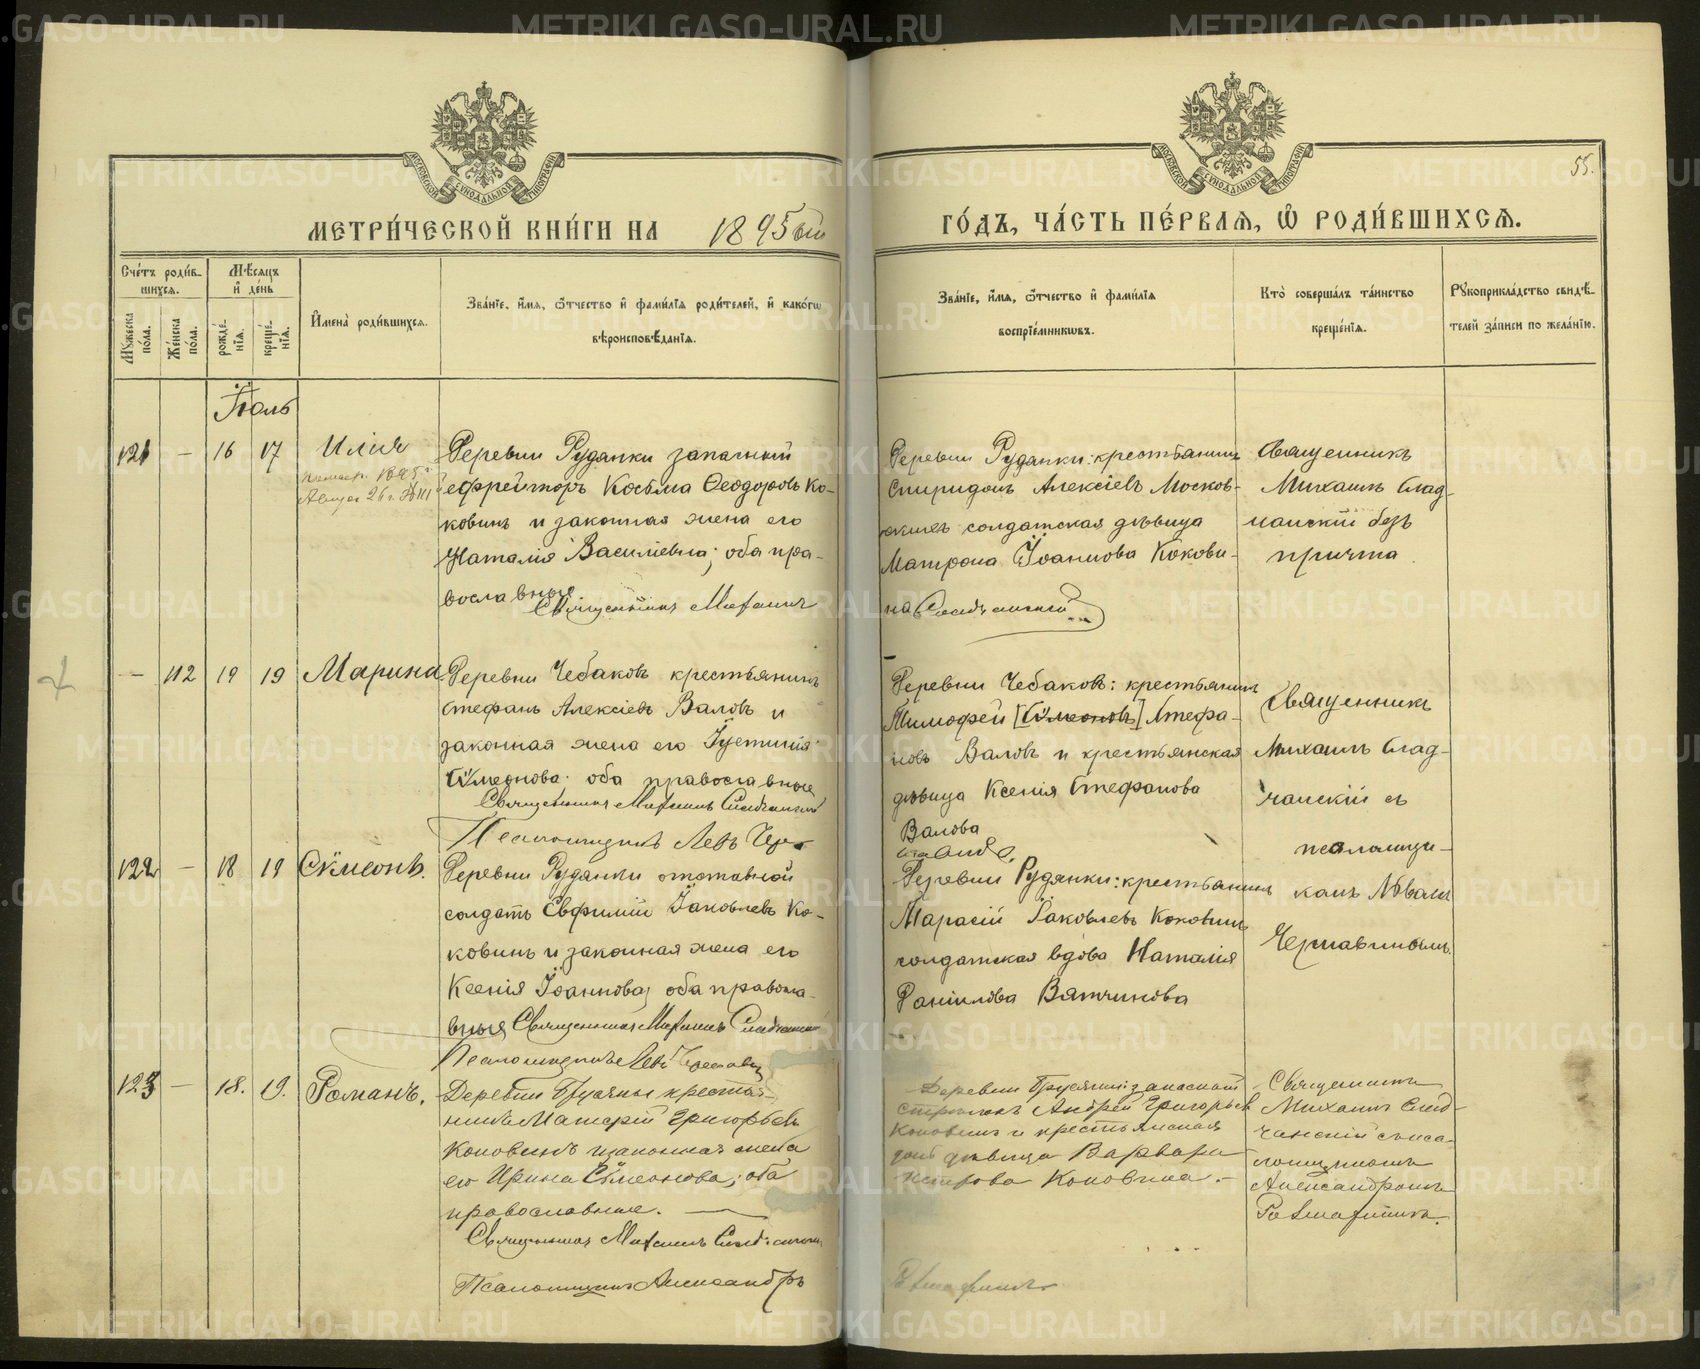 МЕТРИ́ЧЕСКОЙ КНИ́ГИ НА 1895 ый
ГО́ДЪ, ЧА́СТЬ ПЕ́РВАЯ, Ѡ҆ РОДИ́ВШИХСЯ.
55.
Сче́тъ роди́в-
шихся.
Мѣ́сяцъ
и҆ де́нь
Мꙋ́жеска
по́ла.
Же́нска
по́ла.
рожде́-
нїя.
креще́-
нїя.
И҆мена̀ роди́вшихся.
Зва́нїе, и҆́мя, ѻ҆́тчество и҆ фами́лїя роди́телей, и҆ како́гѡ
вѣроисповѣ́данїя.
Зва́нїе, и҆́мя, ѻ҆́тчество и҆ фами́лїя
воспрїе́мникѡвъ.
Кто̀ соверша́лъ та́инство
креще́нїя.
Рꙋкоприкла́дство свидѣ́-
телей за́писи по жела́нїю.
Іюль
121 — 16 17 Илія
1895
Деревни Рудянки запасный
ефрейторъ Косьма Ѳеодоровъ Ко-
ковинъ и законная жена его
Наталія Василіевна; оба пра-
вославные
Священникъ Михаилъ
Деревни Рудянки: крестьянинъ
Спиридонъ Алексіевъ Москов-
скихъ солдатская дѣвица
Матрона Іоаннова Кокови-
на Сладчанскій
Священникъ
Михаилъ Слад-
чанскій безъ
причта
— 112 19 19 Марина
Деревни Чебаковъ крестьянинъ
Стефанъ Алексіевъ Валовъ и
законная жена его Іустинія
Сѵмеонова оба православные
Священникъ Михаилъ Сладчанскій
Псаломщикъ Левъ Чер-
Деревни Чебаковъ: крестьянинъ
Тимофей [Сѵмеоновъ] Стефа-
новъ Валовъ и крестьянская
дѣвица Ксенія Стефанова
Валова
Священникъ
Михаилъ Слад-
чанскій съ
псаломщи-
комъ Львомъ
Черлавинымъ
122 — 18 19 Сѵмеонъ.
Деревни Рудянки отставной
солдатъ Евфимій Іаковлевъ Ко-
ковинъ и законная жена его
Ксенія Іоаннова; оба правосла-
вные Священникъ Михаилъ Сладчанскій
Псаломщикъ Левъ
Деревни Рудянки: крестьянинъ
Тарасій Іаковлевъ Коковинъ
солдатская вдова Наталія
Даніилова Вятчинова
123 — 18. 19. Романъ.
Деревни Брусяны крестья-
нинъ Григорьевъ
Коковинъ и законная жена
его Ирина Сѵмеонова; оба
православные.
Священникъ Михаилъ
Псаломщикъ Александръ
Деревни запасной
Андрей Григорьевъ
Коковинъ и крестьянская
дѣвица Варвара
Петрова Коковина.
Священникъ
Михаилъ Слад-
чанскій съ пса-
ломщикомъ
Александромъ
METRIKI.GASO-URAL.RU